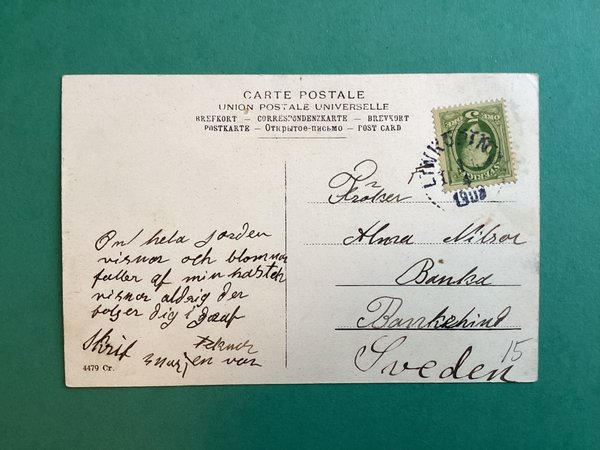 CARTE POSTALE
UNION POSTALE UNIVERSELLE
BREFKORT — CORRESPONDENZKARTE — BREVKORT
POSTKARTE — Открытое-письмо — POST CARD
5
LINKÖPING
1908
Fröken
Nilson
Banka
Bankekind
Sveden
15
Om hela jorden
visnar och blommor
faller af min
visnar aldrig der
dig i
Skrif
snarj en van
4479 Cr.